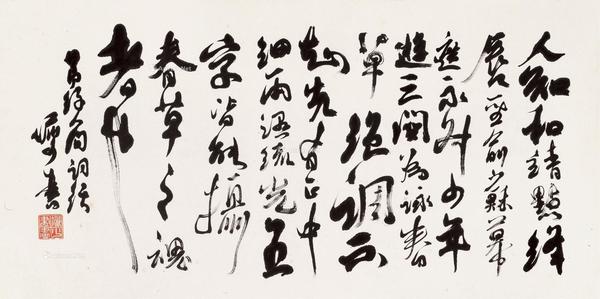 人知和靖點絳
唇聖俞蘇幕
遮永叔少年
遊三闋為詠春
草絕調不
知先有正中
細雨濕流光五
字皆能攝
春草之魂
者也
詞話
書